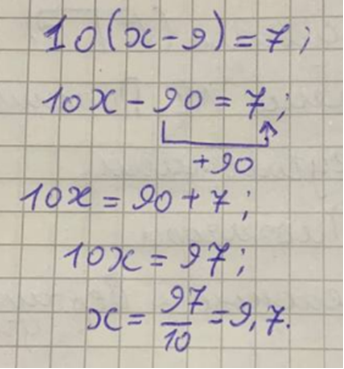 10(x-9)=7;
10x-90=7;
+90
10x=90+7;
10x=97;
x=97/10=9,7.